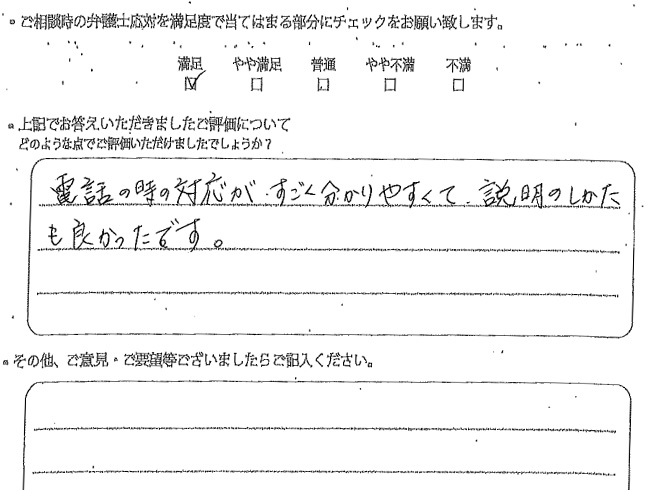 ・ご相談時の弁護士応対を満足度で当てはまる部分にチェックをお願い致します。
満足 やや満足 普通 やや不満 不満
☑ □ □ □ □
・上記でお答えいただきましたご評価について
どのような点でご評価いただけましたでしょうか？
電話の時の対応が、すごく分かりやすくて、説明のしかた
も良かったです。
・その他、ご意見・ご要望等ございましたらご記入ください。